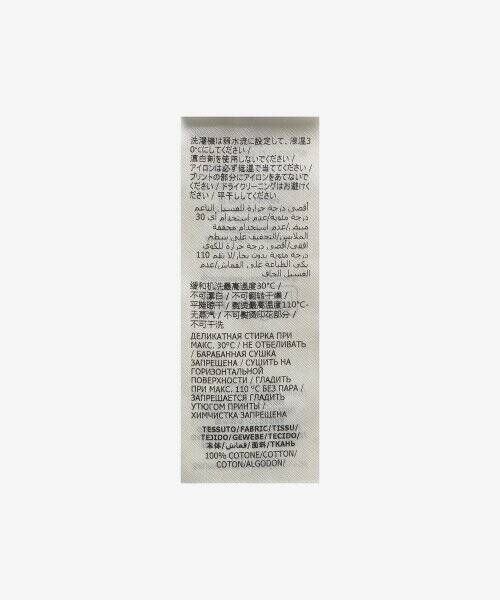 洗濯機は弱水流に設定して、液温3
0℃にしてください/
漂白剤を使用しないでください/
アイロンは必ず低温で当ててください/
プリントの部分にアイロンをあてないで
ください / ドライクリーニングはお避けく
ださい / 平干ししてください/
أقصى درجة حرارة للغسيل الناعم
30 درجة مئوية/عدم استخدام أي
مبيض/عدم استخدام مجففة
الملابس/التجفيف على سطح
أفقي/أقصى درجة حرارة للكوي
110 درجة مئوية بدون بخار/لا تقم
بكي الطباعة على القماش/عدم
الغسيل الجاف
缓和机洗最高温度30°C /
不可漂白 / 不可翻转干燥 /
平摊晾干 / 熨烫最高温度110°C-
无蒸汽 / 不可熨烫印花部分 /
不可干洗
ДЕЛИКАТНАЯ СТИРКА ПРИ
МАКС. 30°C / НЕ ОТБЕЛИВАТЬ
/ БАРАБАННАЯ СУШКА
ЗАПРЕЩЕНА / СУШИТЬ НА
ГОРИЗОНТАЛЬНОЙ
ПОВЕРХНОСТИ / ГЛАДИТЬ
ПРИ МАКС. 110 °C БЕЗ ПАРА /
ЗАПРЕЩАЕТСЯ ГЛАДИТЬ
УТЮГОМ ПРИНТЫ /
ХИМЧИСТКА ЗАПРЕЩЕНА
TESSUTO/FABRIC/TISSU/
TEJIDO/GEWEBE/TECIDO/
本体/قماش/面料/ТКАНЬ
100% COTONE/COTTON/
COTON/ALGODON/